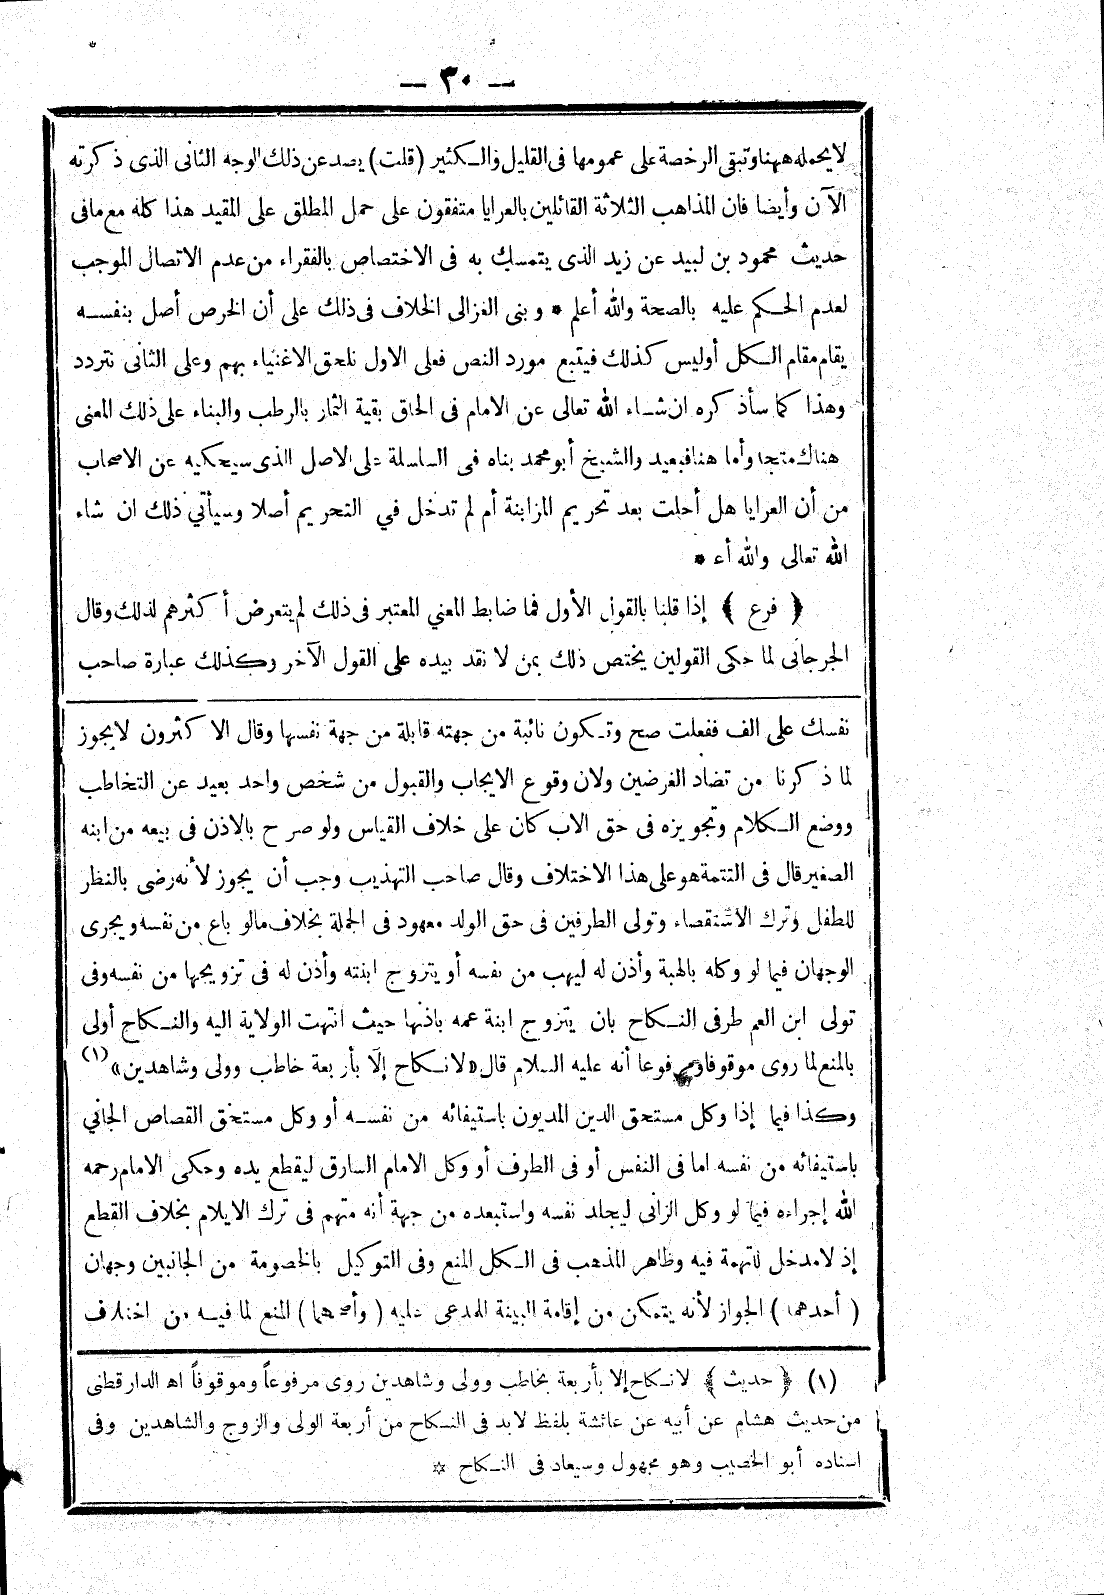 — ٣٠ —
لايحمله ههنا وتبقى الرخصة على عمومها فى القليل والكثير (قلت) يصد عن ذلك الوجه الثانى الذى ذكرته
الآن وأيضا فان المذاهب الثلاثة القائلين بالعرايا متفقون على حمل المطلق على المقيد هذا كله مع مافى
حديث محمود بن لبيد عن زيد الذى يتمسك به فى الاختصاص بالفقراء من عدم الاتصال الموجب
لعدم الحكم عليه بالصحة والله أعلم * وبنى الغزالى الخلاف فى ذلك على أن الخرص أصل بنفسه
يقام مقام الكل أوليس كذلك فيتبع مورد النص فعلى الاول نلحق الاغنياء بهم وعلى الثانى نتردد
وهذا كما سأذكره ان شاء الله تعالى عن الامام فى الحاق بقية الثمار بالرطب والبناء على ذلك المعنى
هناك متجه وأما هنا فبعيد والشيخ أبو محمد بناه فى السلسلة على الاصل الذى سيحكيه عن الاصحاب
من أن العرايا هل أحلت بعد تحريم المزابنة أم لم تدخل في التحريم أصلا وسيأتي ذلك ان شاء
الله تعالى والله أع *
﴿ فرع ﴾ إذا قلنا بالقول الأول فما ضابط المعني المعتبر فى ذلك لم يتعرض أكثرهم لذلك وقال
الجرجانى لما حكى القولين يختص ذلك بمن لا نقد بيده على القول الآخر وكذلك عبارة صاحب
نفسك على الف ففعلت صح وتكون نائبة من جهته قابلة من جهة نفسها وقال الاكثرون لايجوز
لما ذكرنا من تضاد الغرضين ولان وقوع الايجاب والقبول من شخص واحد بعيد عن التخاطب
ووضع الكلام وتجويزه فى حق الاب كان على خلاف القياس ولو صرح بالاذن فى بيعه من ابنه
الصغير قال فى التتمة هو على هذا الاختلاف وقال صاحب التهذيب وجب أن يجوز لأنه رضى بالنظر
للطفل وترك الاستقصاء وتولى الطرفين فى حق الولد معهود فى الجملة بخلاف مالو باع من نفسه ويجرى
الوجهان فيما لو وكله بالهبة وأذن له ليهب من نفسه أو يتزوج ابنته وأذن له فى تزويجها من نفسه وفى
تولى ابن العم طرفى النكاح بان يتزوج ابنة عمه باذنها حيث انتهت الولاية اليه والنكاح أولى
بالمنع لما روى موقوفا ومرفوعا أنه عليه السلام قال «لانكاح إلا بأربعة خاطب وولى وشاهدين» (١)
وكذا فيما إذا وكل مستحق الدين المديون باستيفائه من نفسه أو وكل مستحق القصاص الجاني
باستيفائه من نفسه اما فى النفس أو فى الطرف أو وكل الامام السارق ليقطع يده وحكى الامام رحمه
الله إجراءه فيما لو وكل الزانى ليجلد نفسه واستبعده من جهة أنه متهم فى ترك الايلام بخلاف القطع
إذ لامدخل للتهمة فيه وظاهر المذهب فى الكل المنع وفى التوكيل بالخصومة من الجانبين وجهان
( أحدهما ) الجواز لأنه يتمكن من إقامة البينة للمدعى عليه ( وأصحهما ) المنع لما فيه من اختلاف
(١) ﴿ حديث ﴾ لانكاح إلا بأربعة بخاطب وولى وشاهدين روى مرفوعاً وموقوفاً اه الدارقطنى
من حديث هشام عن أبيه عن عائشة بلفظ لابد فى النكاح من أربعة الولى والزوج والشاهدين وفى
اسناده أبو الخصيب وهو مجهول وسيعاد فى النكاح *